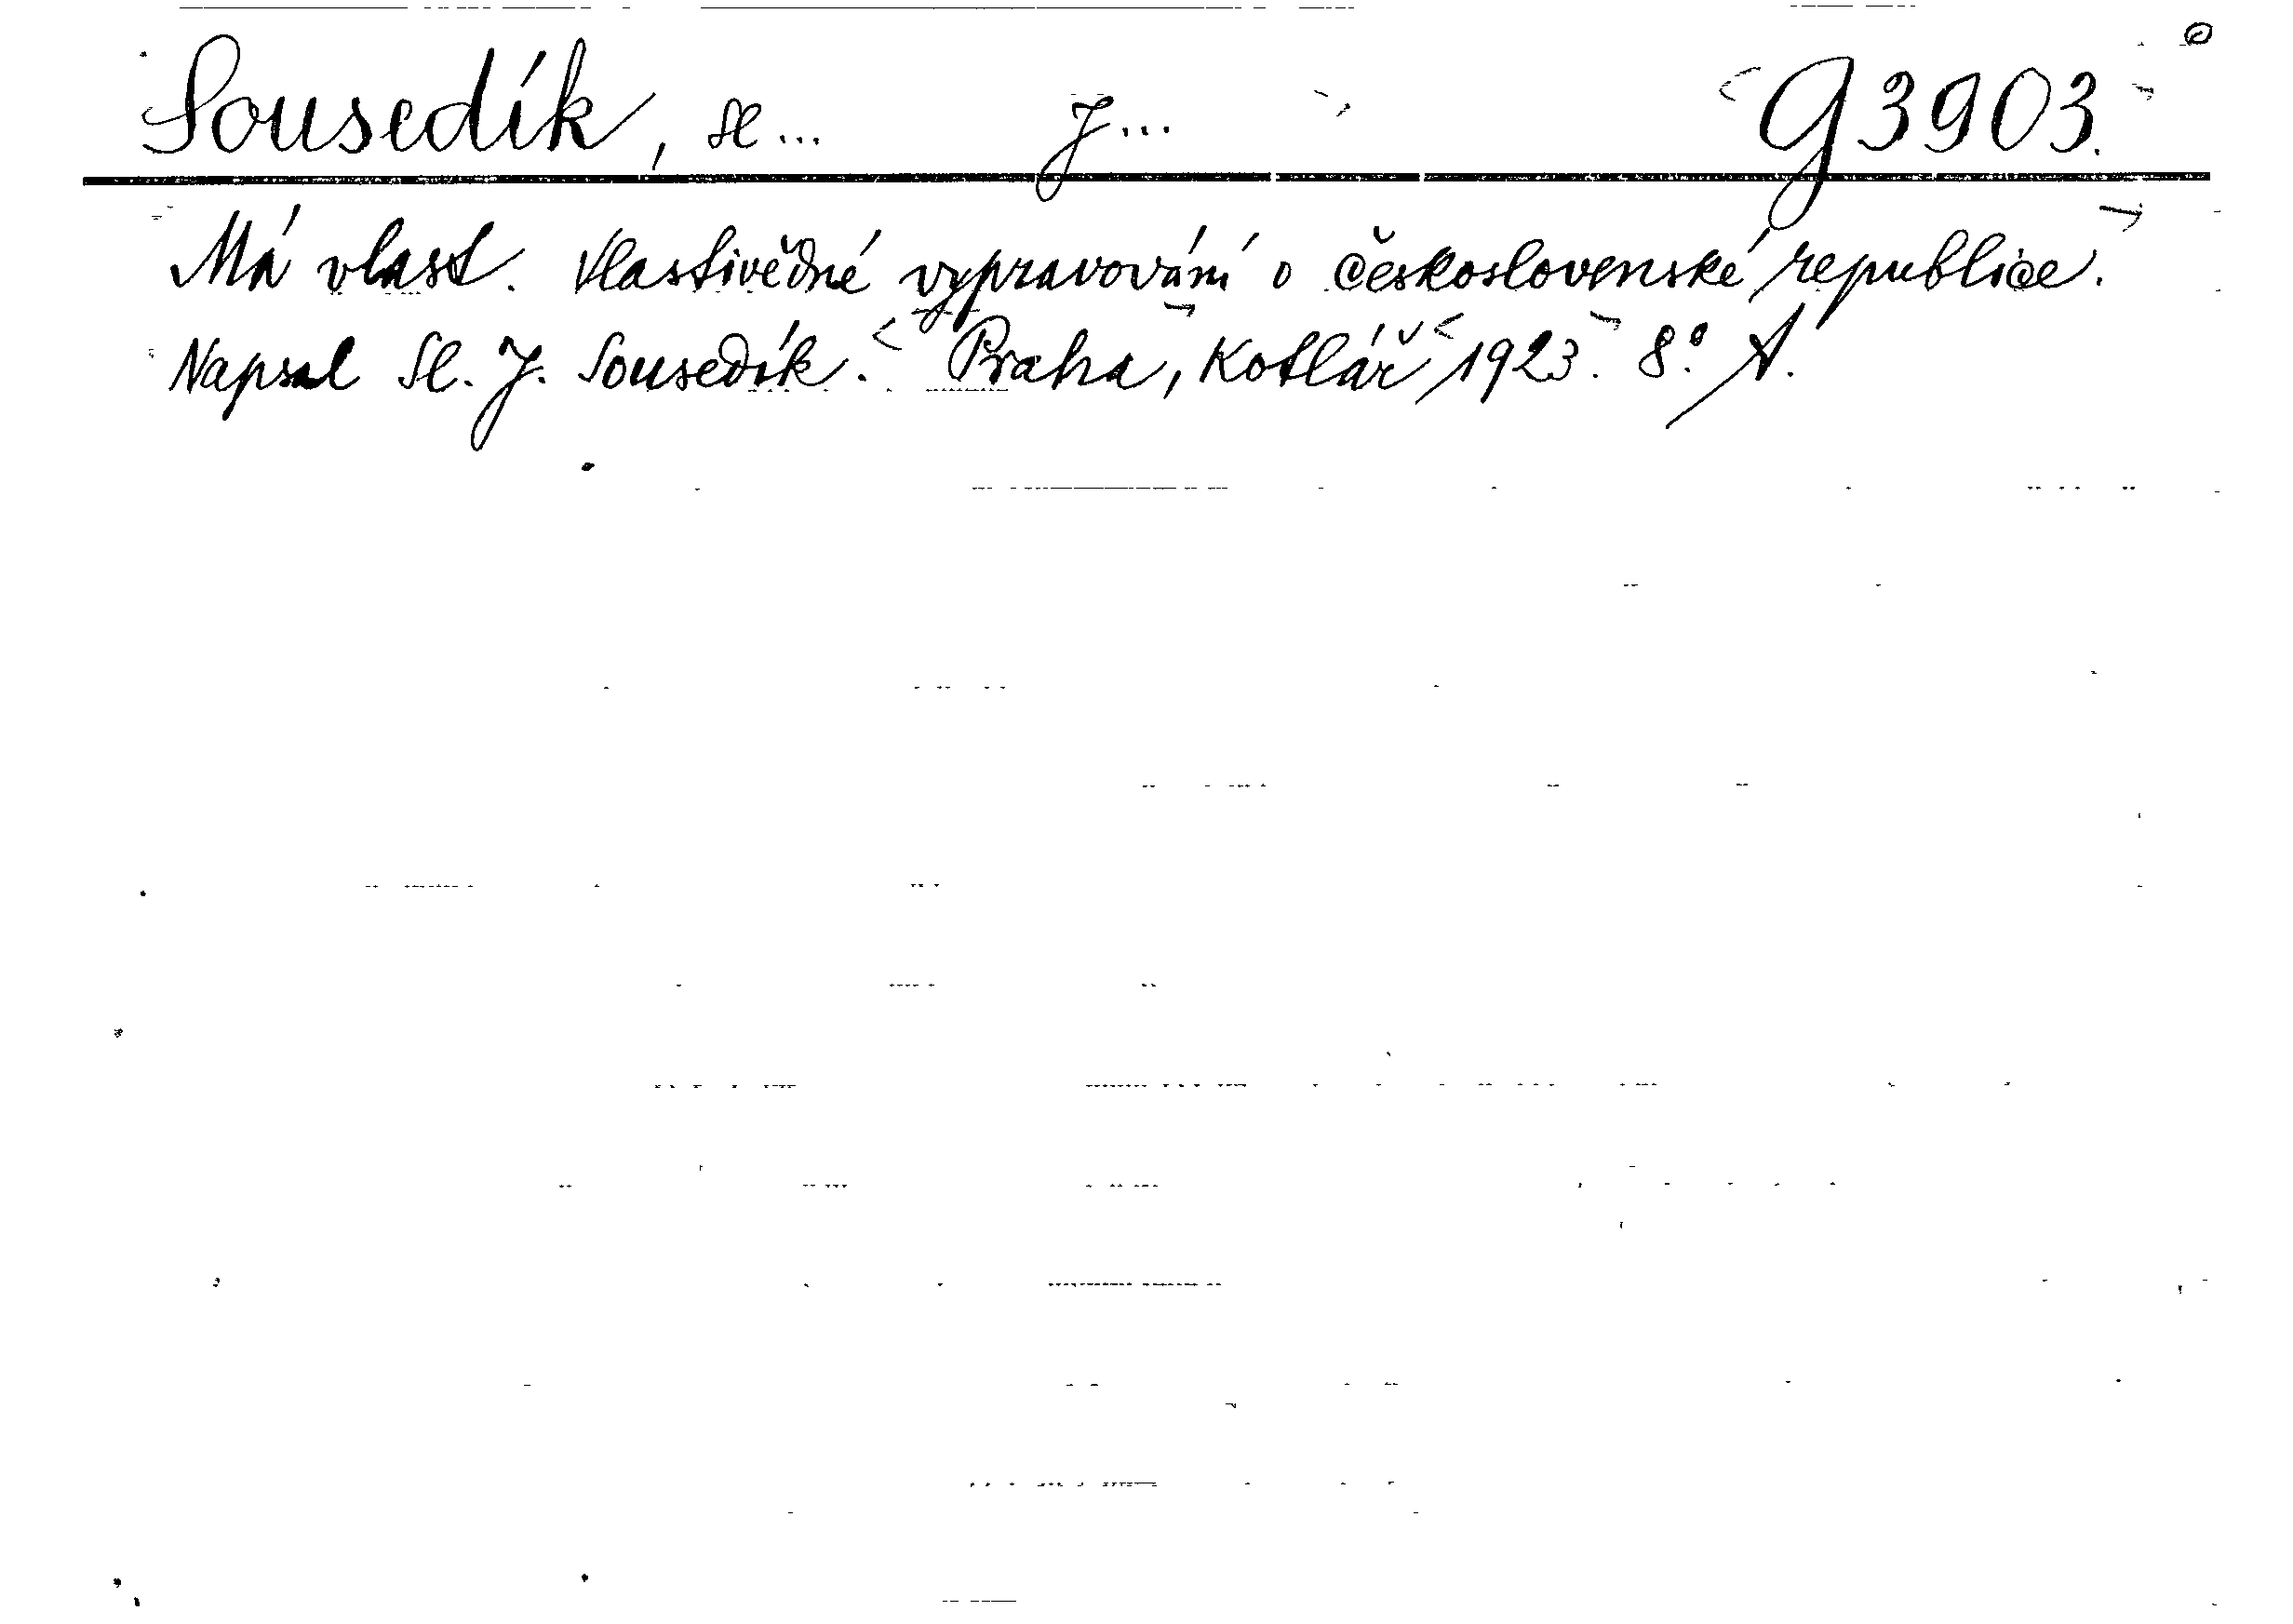 Sousedík, Sl... J... G 3903.
Má vlast. Vlastivědné vypravování o československé republice.
Napsal Sl. J. Sousedík. Praha, Kotlář 1923. 8°. A.